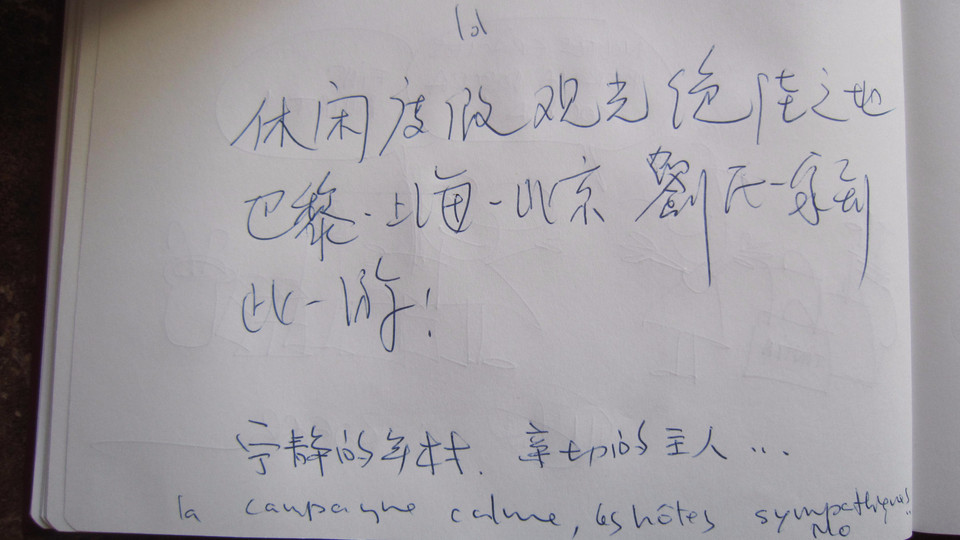 休闲度假观光绝佳之地
巴黎-上海-北京 劉氏一家到
此一游!
宁静的农村. 亲切的主人...
la campagne calme, les hôtes sympathiques..
Mo